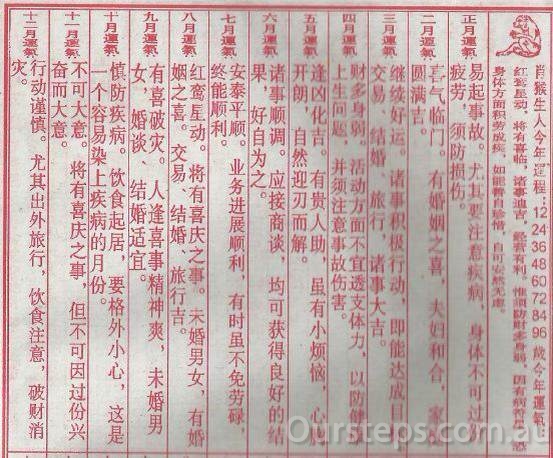 肖猴生人今年运程：12 24 36 48 60 72 84 96 岁今年運氣
红鸾星动，将有喜临，诸事迪吉，经营有利。惟须防财多身弱，因有病符
身体方面积劳成疾，如能善自珍惜，自可安然无虑。
正月運氣
易起事故。尤其要注意疾病，身体不可过份
疲劳，须防损伤。
二月運氣
喜气临门。有婚姻之喜，夫妇和合，家
圆满吉。
三月運氣
继续好运。诸事积极行动，即能达成目
交易、结婚、旅行，诸事大吉。
四月運氣
财多身弱。活动方面不宜透支体力，以防健康
上生问题，并须注意事故伤害。
五月運氣
逢凶化吉。有贵人助，虽有小烦恼，心胸
开朗，自然迎刃而解。
六月運氣
诸事顺调。应接商谈，均可获得良好的结
果，好自为之。
七月運氣
安泰平顺。业务进展顺利，有时虽不免劳碌，
终能顺利。
八月運氣
红鸾星动。将有喜庆之事。未婚男女，有婚
姻之喜。交易、结婚、旅行吉。
九月運氣
有喜破灾。人逢喜事精神爽，未婚男
女，婚谈、结婚适宜。
十月運氣
慎防疾病。饮食起居，要格外小心，这是
一个容易染上疾病的月份。
十一月運氣
不可大意。将有喜庆之事，但不可因过份兴
奋而大意。
十二月運氣
行动谨慎。尤其出外旅行，饮食注意，破财消
灾。
Oursteps.com.au